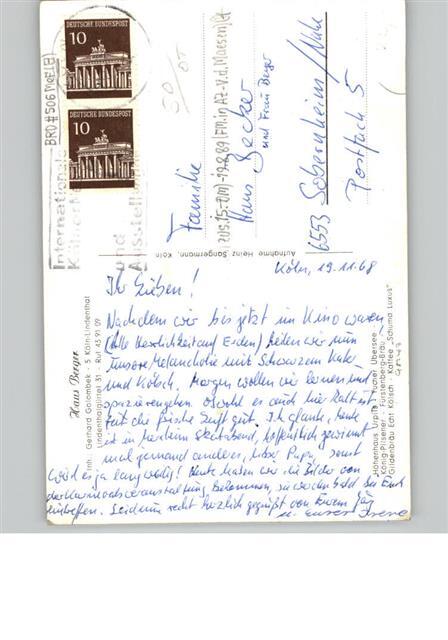 DEUTSCHE BUNDESPOST
10
DEUTSCHE BUNDESPOST
10
BRD #506 MeF(2)
Internationale
Kölner
und
Ausstellung
50/05
zus.15-DM)-19.2.89(FM.in AZ-V.d.Maesen)St
Familie
Hans Becker
und Frau Berger
6553 Sobernheim/Nahe
Postfach 5
Aufnahme Heinz Sangermann, Köln
Haus Berger
Inh. Gerhard Golombek · 5 Köln-Lindenthal
Lindenthalgürtel 31 · Ruf 43 91 09
„Höhenhaus Urpils" Tucher Übersee
König-Pilsener · Fürstenberg-Bräu
Gildenbräu Echt Kölsch · Kaffee „Schuma Luxus"
Köln, 19.11.68
Ihr Lieben!
Nachdem wir bis jetzt im Kino waren
(Alle Herrlichkeit auf Erden) heilen wir nun
unsere Melancholie mit Schwarzem Kater
und Kölsch. Morgen wollen wir lernen und
spazierengehen. Obwohl es auch hier kalt ist,
tut die frische Luft gut. Ich glaube, heute
ist in Skatabend, hoffentlich gewinnt
mal jemand anders, lieber Papa, sonst
wird es ja langweilig! Heute haben wir die Bilder von
der Karnevalsveranstaltung bekommen, sie werden bald bei Euch
eintreffen. Seid nun recht herzlich gegrüßt von Eurem
u. Eurer Irene